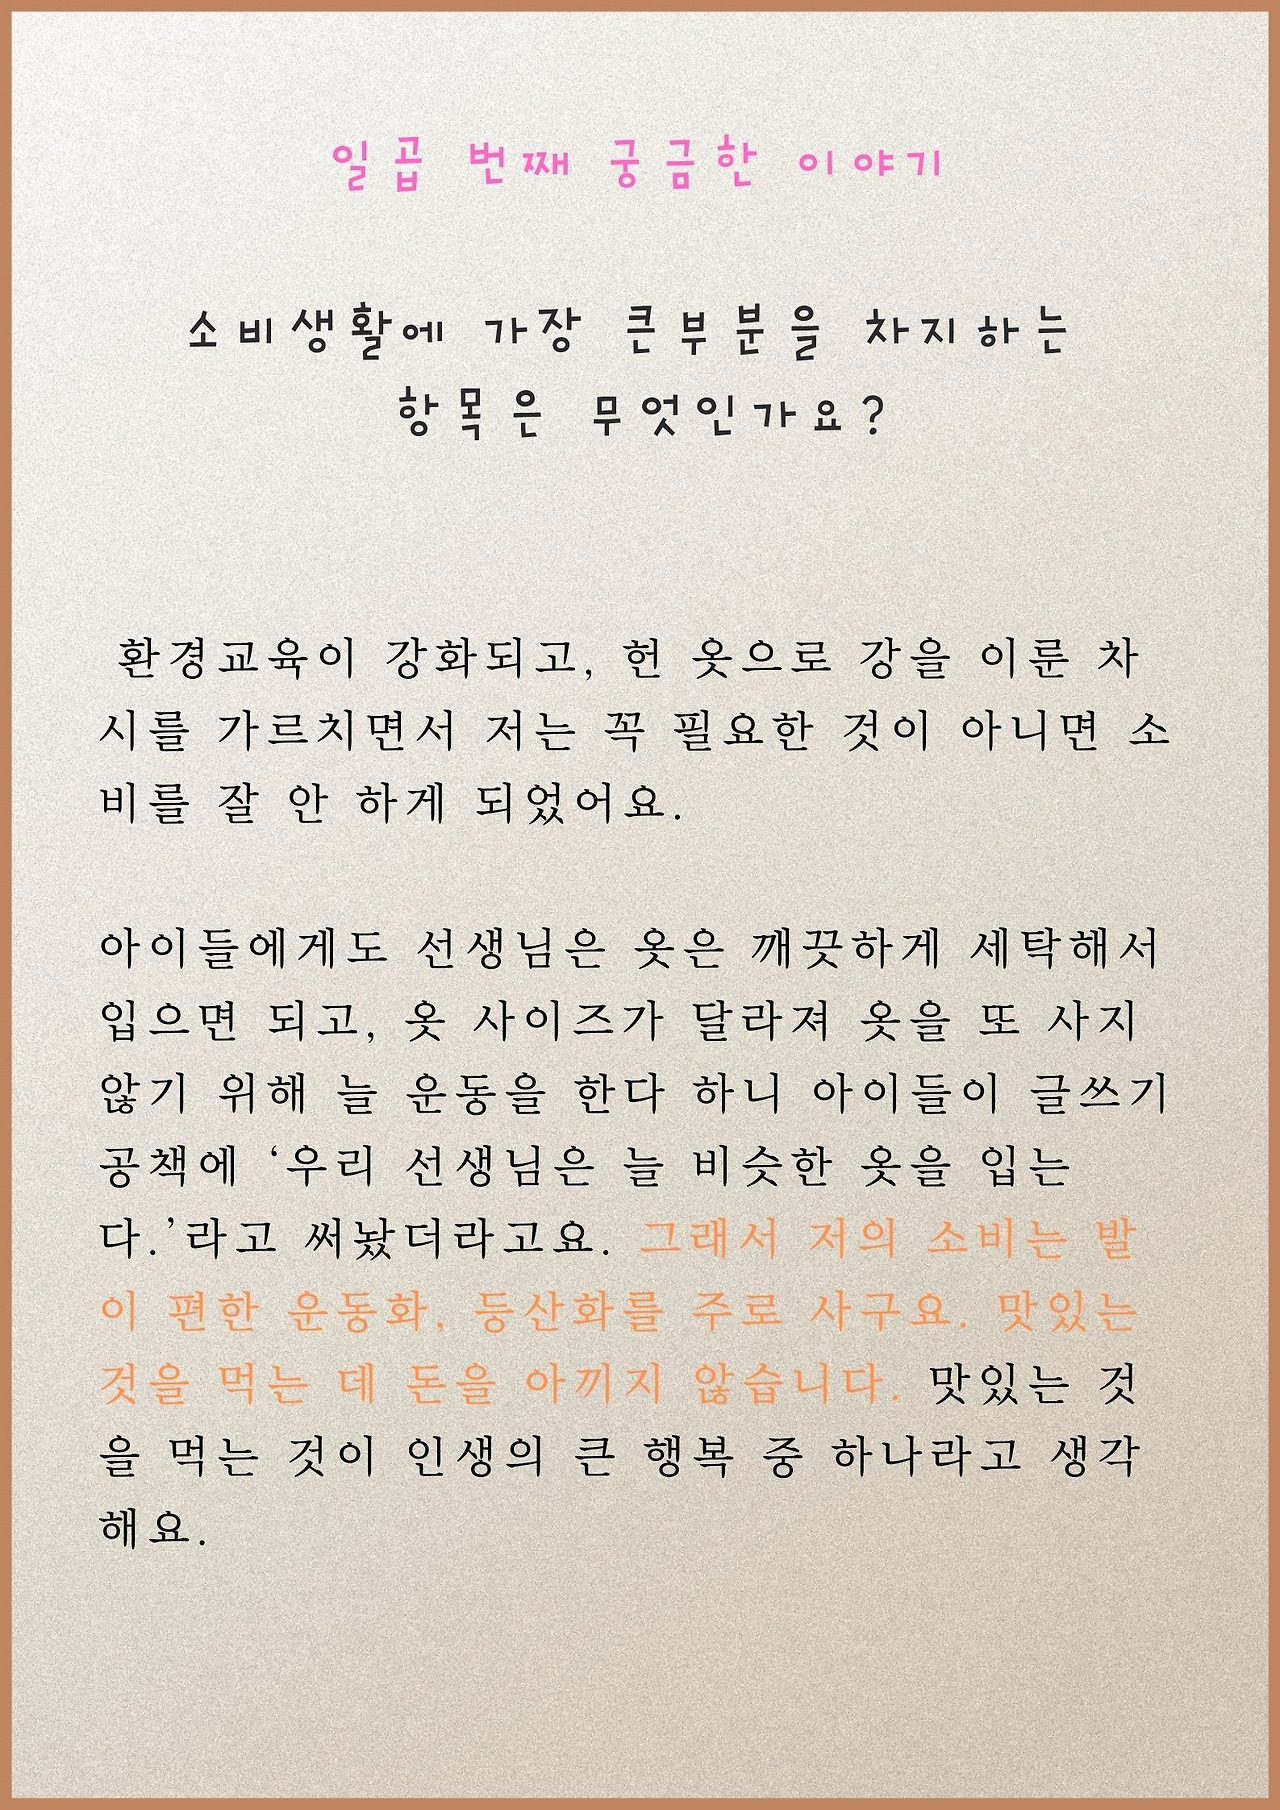 일곱 번째 궁금한 이야기
소비생활에 가장 큰부분을 차지하는
항목은 무엇인가요?
환경교육이 강화되고, 헌 옷으로 강을 이룬 차
시를 가르치면서 저는 꼭 필요한 것이 아니면 소
비를 잘 안 하게 되었어요.
아이들에게도 선생님은 옷은 깨끗하게 세탁해서
입으면 되고, 옷 사이즈가 달라져 옷을 또 사지
않기 위해 늘 운동을 한다 하니 아이들이 글쓰기
공책에 ‘우리 선생님은 늘 비슷한 옷을 입는
다.’라고 써놨더라고요. 그래서 저의 소비는 발
이 편한 운동화, 등산화를 주로 사구요. 맛있는
것을 먹는 데 돈을 아끼지 않습니다. 맛있는 것
을 먹는 것이 인생의 큰 행복 중 하나라고 생각
해요.